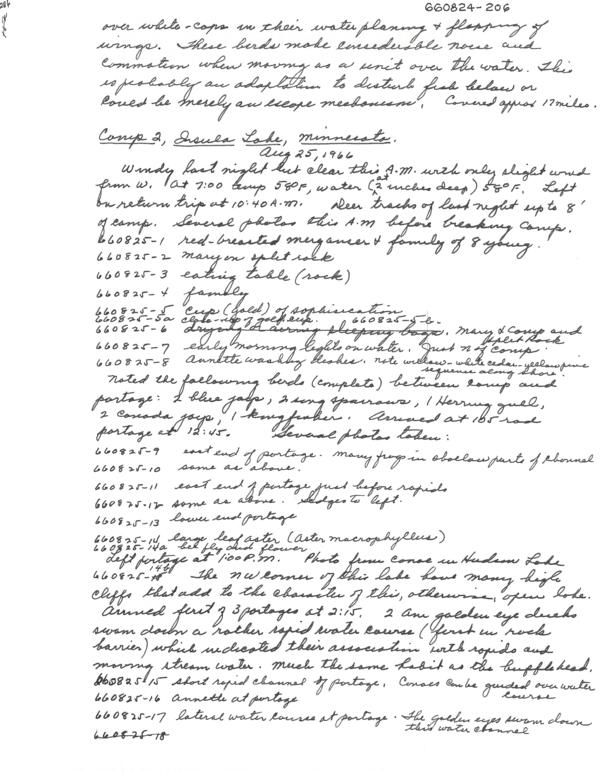 660824-206
over white-caps in their water planing & flapping of
wings. These birds make considerable noise and
commotion when moving as a unit over the water. This
is probably an adaptation to disturb fish below or
could be merely an escape mechanism. Covered approx 17 miles.
Camp 2, Insula Lake, Minnesota.
Aug 25, 1966
Windy last night but clear this A.M. with only slight wind
from W. At 7:00 temp 58°F, water (at 2 inches deep) 58°F. Left
on return trip at 10:40 A.M. Deer tracks of last night up to 8'
of camp. Several photos this A.M before breaking camp.
660825-1 red-breasted merganser & family of 8 young.
660825-2 mary on split rock
660825-3 eating table (rock)
660825-4 family
660825-5 cup (gold) of sophistication
660825-5a close-up of rock cup. 660825-5-b.
660825-6 drying & airing sleeping bags. Mary & Camp and split rock
660825-7 early morning lights on water. Just N of Camp.
660825-8 Annette washing dishes. note willow-white cedar-yellow pine
sequence along shore.
Noted the following birds (complete) between camp and
portage: 2 blue jays, 2 song sparrows, 1 Herring gull,
2 Canada jays, 1 kingfisher. Arrived at 105 rod
portage at 12:45. Several photos taken:
660825-9 east end of portage. many frogs in shallow parts of channel
660825-10 same as above.
660825-11 east end of portage just before rapids
660825-12 same as above. Sedges to left.
660825-13 lower end portage
660825-14 large leaf aster (Aster macrophyllus)
660825-14a bee fly and flower
Left portage at 1:00 P.M. Photo from canoe in Hudson Lake
660825-14b The NW corner of this lake have many high
cliffs that add to the character of this, otherwise, open lake.
Arrived first of 3 portages at 2:15. 2 Am golden eye ducks
swam down a rather rapid water course (first in rock
barrier) which indicated their association with rapids and
moving stream water. Much the same habit as the bufflehead.
660825-15 short rapid channel of portage. Canoes can be guided over water
course
660825-16 annette at portage
660825-17 lateral water course at portage. The golden eyes swam down
this water channel
660825-18